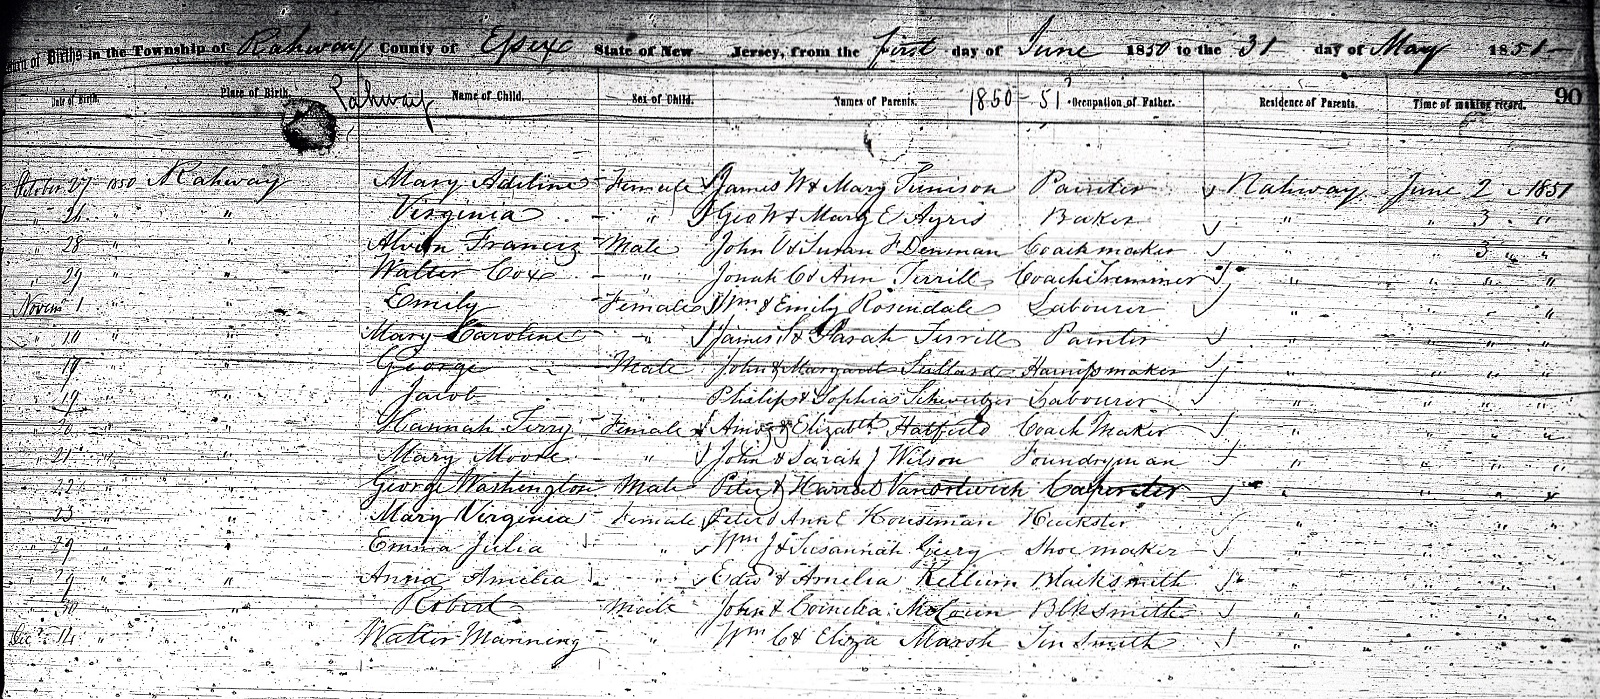 of Births in the Township of Rahway County of Essex State of New Jersey, from the first day of June 1850 to the 31 day of May 1851
Date of Birth. Place of Birth. Rahway Name of Child. Sex of Child. Names of Parents. 1850-51 Occupation of Father. Residence of Parents. Time of making record. 90
October 27 1850 Rahway Mary Adeline Female James W & Mary Tunison Painter Rahway June 2 1851
" " " Virginia " Geo W & Mary E Ayris Baker " " 3 "
" 28 " " Alvin Francis Male John V & Susan F Denman Coachmaker " " 3 " "
" 29 " " Walter Cox " Jonah C & Ann Terrill Coach Trimmer " " " "
Novem 1 " Emily Female Wm & Emily Rosindale Labourer " " " "
" 10 " " Mary Caroline " James S & Sarah Terrill Painter " " " "
" 19 " " George Male John & Margaret Harnessmaker " " " "
" 19 " " Jacob " Philip & Sophia Labourer " " " "
" 20 " " Hannah Terry Female Amos & Elizabeth Hatfield Coach Maker " " " "
" 21 " " Mary Moore " John & Sarah J Wilson Foundryman " " " "
" 22 " " George Washington Male Peter & Harriet Vanortwick Carpenter " " " "
" 23 " " Mary Virginia Female Peter & Ann E Houseman Huckster " " " "
" 29 " " Emma Julia " Wm J & Susannah Shoe maker " " " "
" 29 " " Anna Amelia " Edwd & Amelia Kellurn Blacksmith " " " "
" 30 " " Robert Male John & Cornelia McCoun Blksmith " " " "
Decr 14 " " Walter Manning " Wm C & Eliza Marsh Tin Smith " " " "